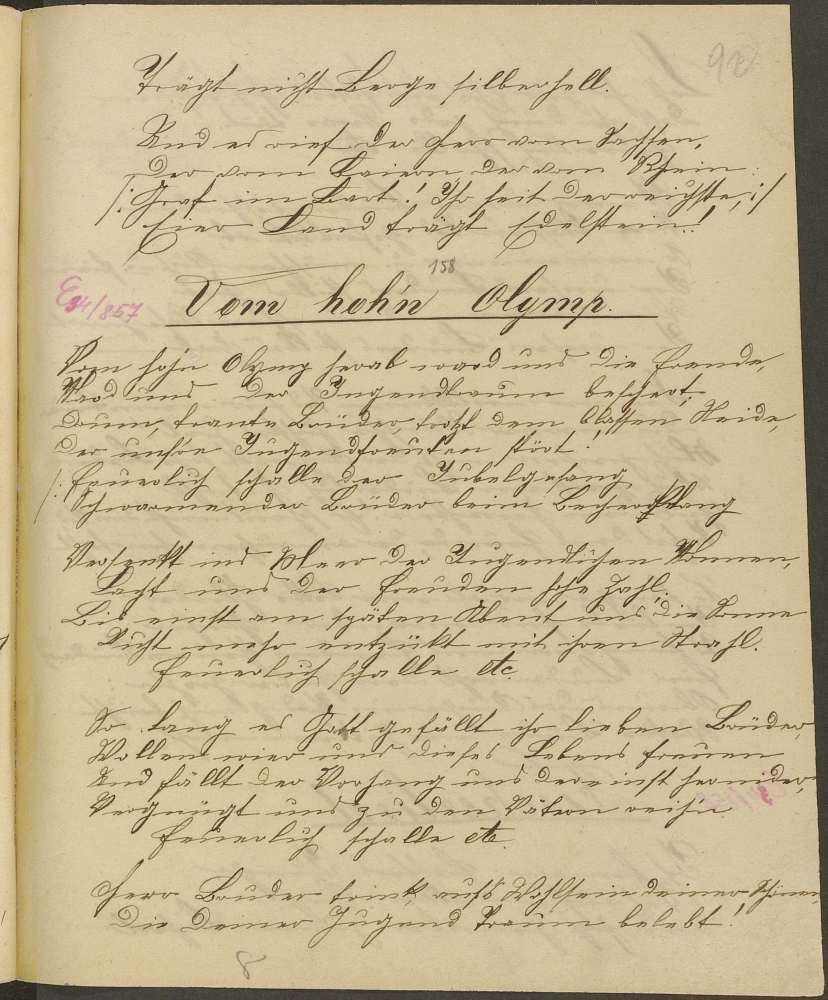 92
Trägt nicht Berge silberhell.
Und es rief der Herr vom Sachsen,
Der vom Baiern der vom Rhein
/: Graf im Bart! Ihr seit der reichste, :/
Eier Land trägt Edelstein!
158
E34/857 Vom hoh'n Olymp.
Vom hoh'n Olymp herab ward uns die Freude,
Ward uns der Jugendtraum beschert,
Drum, traute Brüder, trotzt dem blassen Neide,
Der unsre Jugendfreuden stört!
/: Feuerlich schalle der Jubelgesang
Schwärmender Brüder beim Becherklang
Versenkt ins Meer der Jugendlichen Wonnen,
Lacht uns der Freuden hohe Zahl,
Bis einst am späten Abent uns die Sonne
Nicht mehr entzükt mit ihren Strahl.
Feuerlich schalle etc.
So lang es Gott gefällt ihr lieben Brüder,
Wollen wier uns dieses Lebens freuen
Und fällt der Vorhang uns dereinst hernider,
Vergnügt uns zu den Vätern reih'n
Feuerlich schalle etc.
Herr Bruder trink aufs Wohlsein deiner Schönen,
Die Deiner Jugend Traum belebt!
8